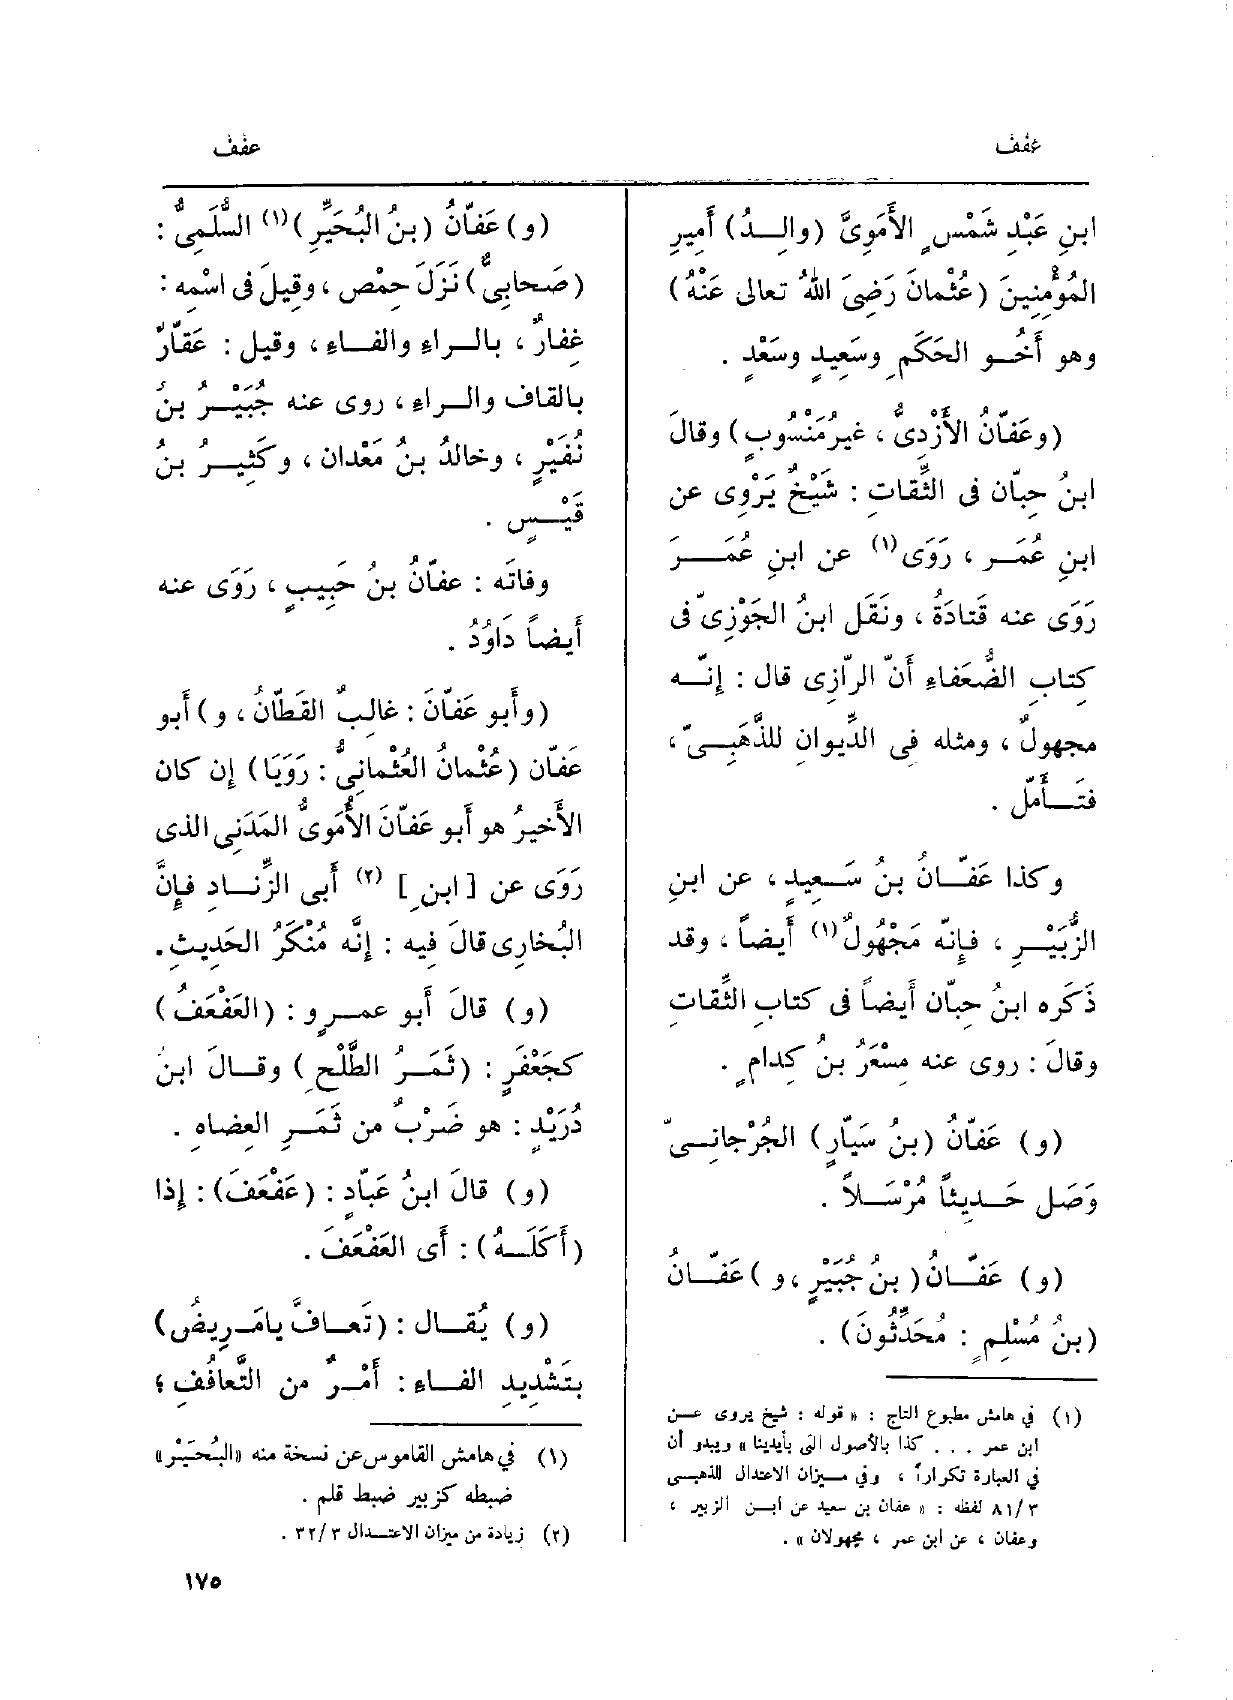 عفف
عفف
ابنِ عَبْدِ شَمْسٍ الأُمَوِىُّ (والِــدُ) أَمِيرِ
المُؤْمِنِينَ (عُثْمانَ رَضِىَ اللهُ تعالى عَنْهُ)
وهو أَخُــو الحَكَمِ وسَعِيدٍ وسَعْدٍ .
(وعَفّانُ الأَزْدِىُّ ، غيرُ مَنْسُوبٍ) وقالَ
ابنُ حِبّان فى الثِّقاتِ : شَيْخٌ يَرْوِى عن
ابنِ عُمَــر ، رَوَى(١) عن ابنِ عُمَــــرَ
رَوَى عنه قَتادَةُ ، ونَقَل ابنُ الجَوْزِىّ فى
كِتابِ الضُّعَفاءِ أَنّ الرّازِى قال : إِنّــه
مجهولٌ ، ومثله فى الدِّيوانِ للذَّهَبِــىّ ،
فتَــأَمَّلْ .
وكذا عَفّــانُ بنُ سَــعِيدٍ ، عن ابنِ
الزُّبَيْــرِ ، فإِنّه مَجْهُولٌ(١) أَيضاً ، وقد
ذَكَره ابنُ حِبّان أَيضاً فى كتابِ الثِّقات
وقالَ : روى عنه مِسْعَرُ بنُ كِدامٍ .
(و) عَفّانُ (بنُ سَيّارٍ) الجُرْجانِــىّ
وَصَل حَــدِيثاً مُرْسَــلاً .
(و) عَفّــانُ (بنُ جُبَيْرٍ ، و) عَفّــانُ
(بنُ مُسْلِمٍ : مُحَدِّثُونَ) .
(١) في هامش مطبوع التاج : « قوله : شيخ يروى عــن
ابن عمر . . . كذا بالأصول التى بأيدينا » ويبدو أن
في العبارة تكراراً ، وفي ميــزان الاعتدال للذهبــى
٨١/٣ لفظه : « عفان بن سعيد عن ابــن الزبير ،
وعفان ، عن ابن عمر ، مجهولان » .
(و) عَفّانُ (بنُ البُحَيِّرِ)(١) السُّلَمِىُّ :
(صَحابِىٌّ) نَزَلَ حِمْص ، وقِيلَ فى اسْمِه :
غِفارٌ ، بالــراءِ والفــاءِ ، وقيل : عَقّارٌ
بالقاف والــراءِ ، روى عنه جُبَيْــرُ بنُ
نُفَيْرٍ ، وخالدُ بنُ مَعْدان ، وكَثِيــرُ بنُ
قَيْــسٍ .
وفاتَه : عفّانُ بنُ حَبِيبٍ ، رَوَى عنه
أَيضاً دَاوُدُ .
(وأَبو عَفّانَ : غالِبٌ القَطّانُ ، و) أَبو
عَفّان (عُثْمانُ العُثْمانِىُّ : رَوَيَا) إِن كان
الأَخيرُ هو أَبو عَفّانَ الأُمَوِىُّ المَدَنِى الذى
رَوَى عن [ابنِ] (٢) أَبى الزِّنــادِ فإِنَّ
البُخارِى قالَ فِيه : إِنَّه مُنْكَرُ الحَدِيثِ.
(و) قالَ أَبو عمــرٍو : (العَفْعَفُ)
كجَعْفَرٍ : (ثَمَــرُ الطَّلْحِ) وقــالَ ابنُ
دُرَيْدٍ : هو ضَرْبٌ من ثَمَــرِ العِضاهِ .
(و) قالَ ابنُ عَبّادٍ : (عَفْعَفَ) : إِذا
(أَكَلَــهُ) : أَى العَفْعَفَ .
(و) يُقــال : (تَعــافَّ يامَــرِيضُ)
بتَشْدِيدِ الفــاءِ : أَمْــرٌ من التَّعافُفِ ؛
(١) في هامش القاموس عن نسخة منه «البُحَيْر»
ضبطه كزبير ضبط قلم .
(٢) زيادة من ميزان الاعتــدال ٣٢/٣ .
١٧٥